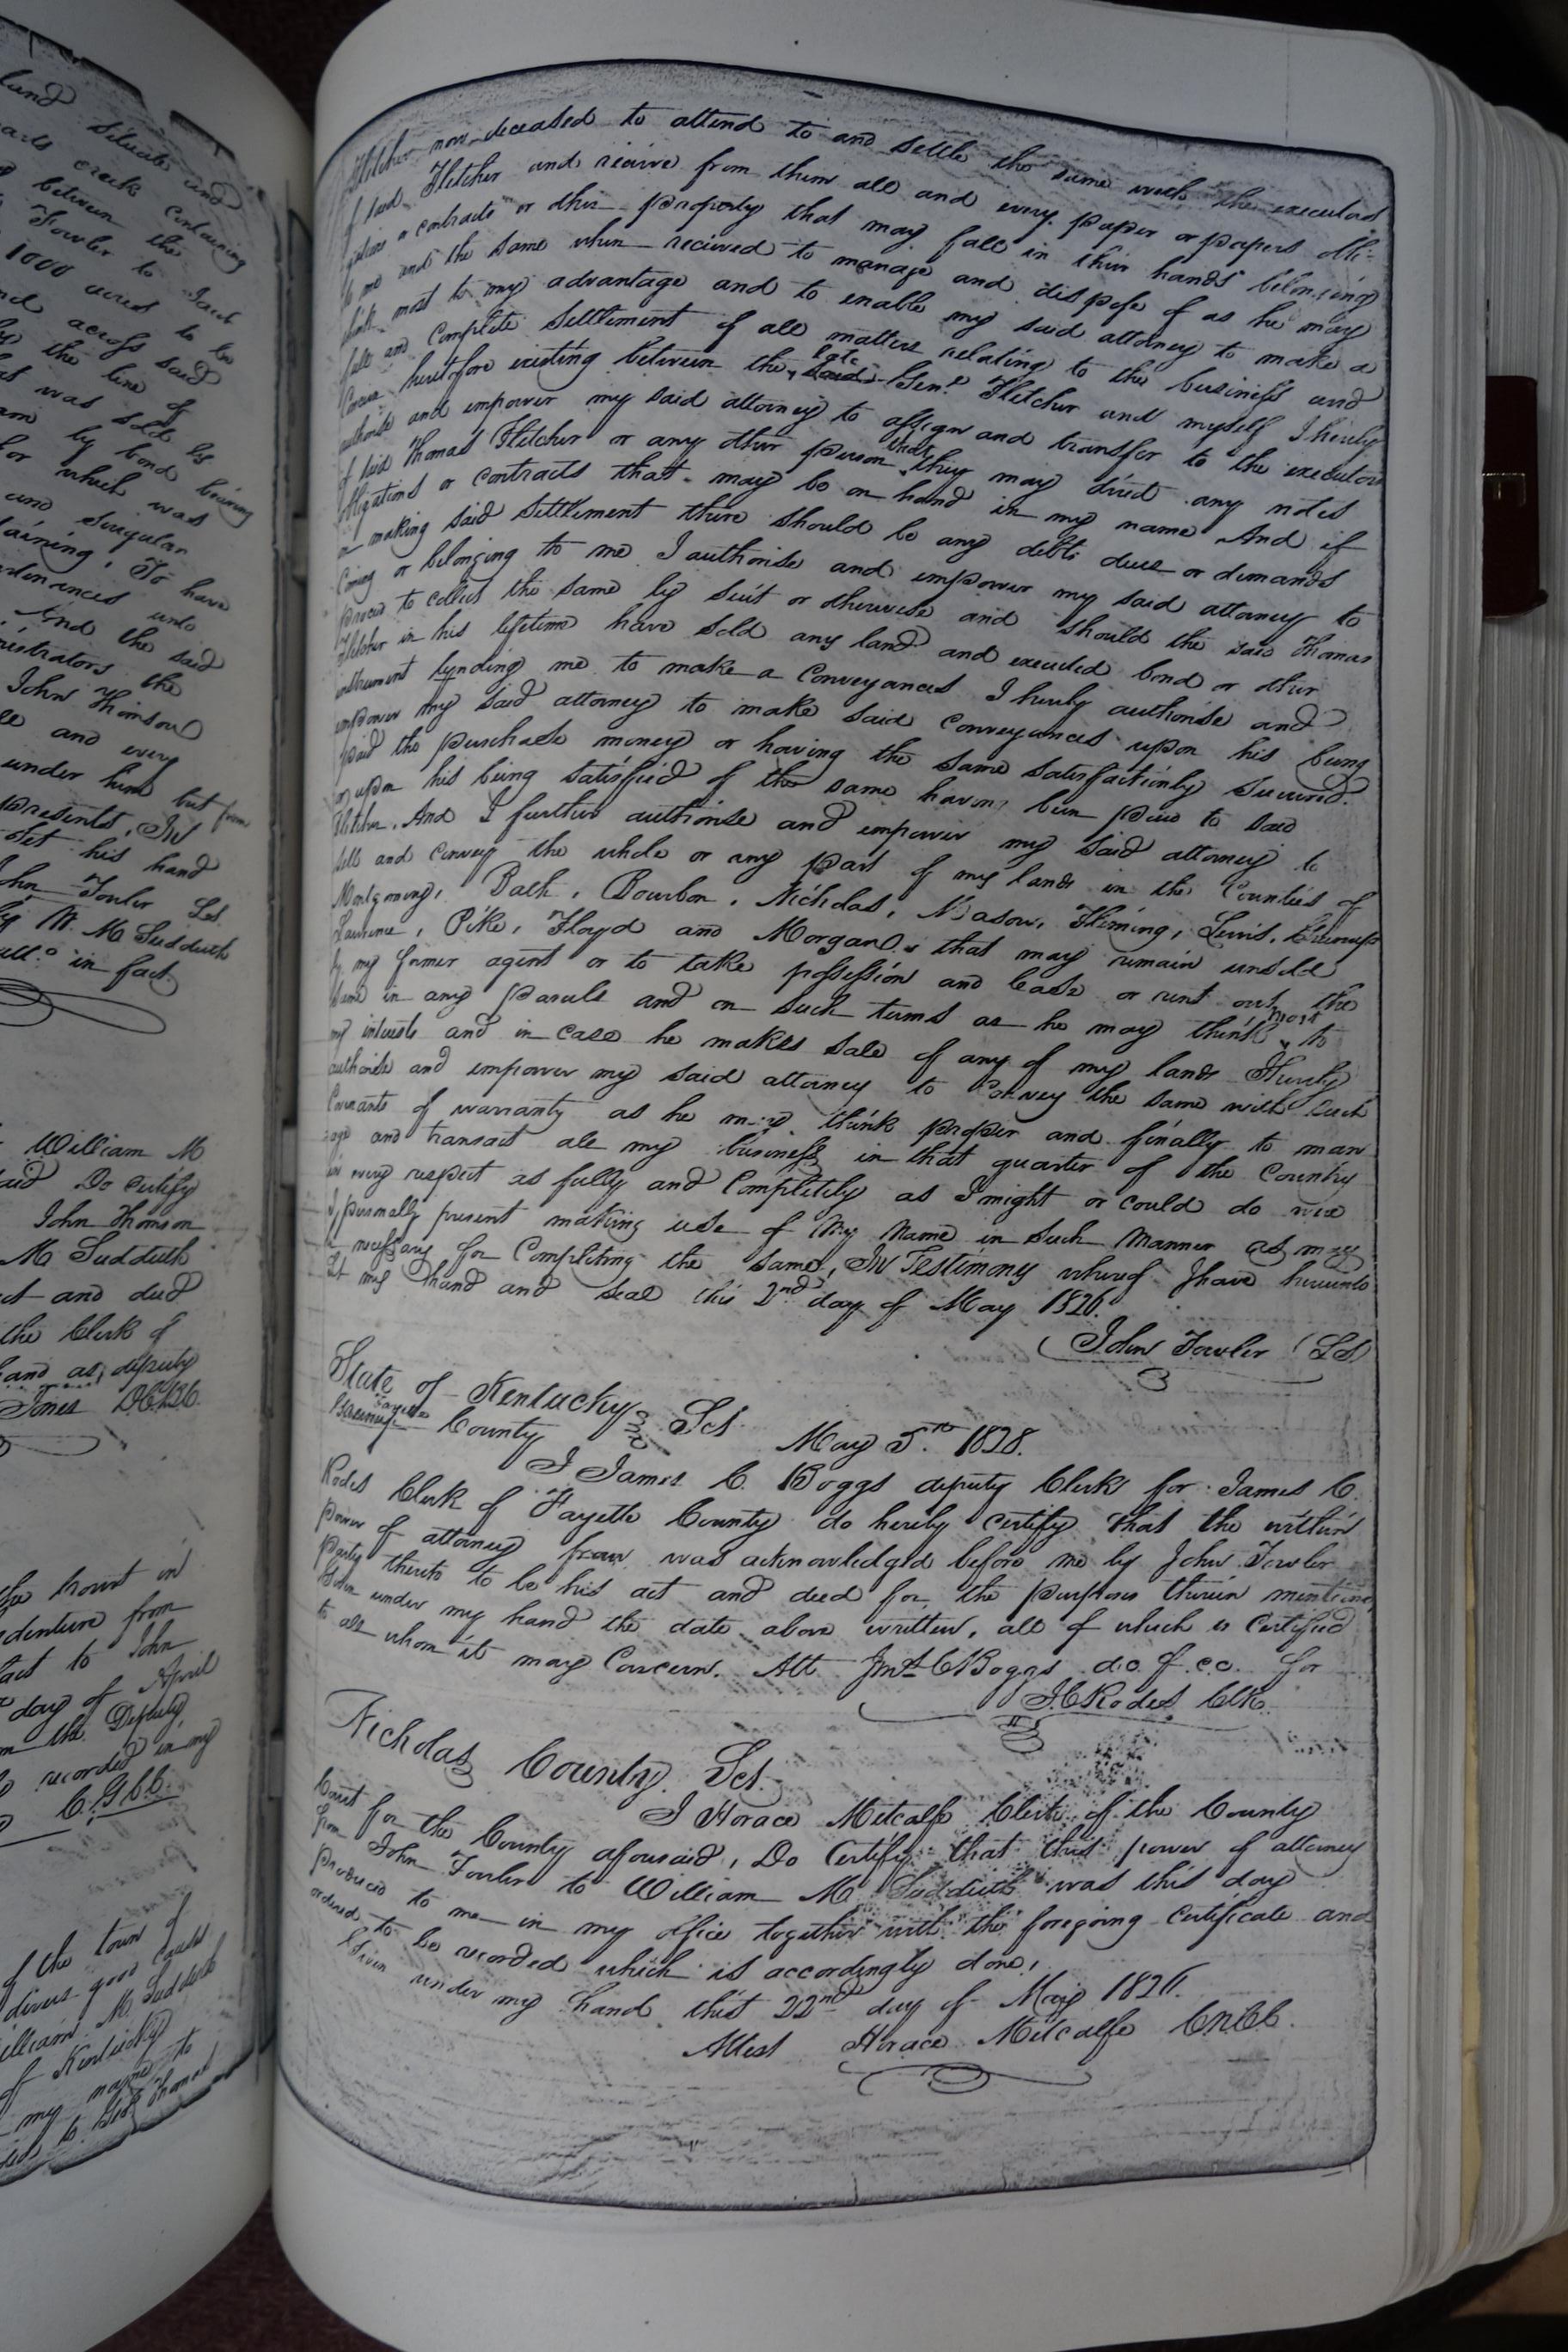 land
situate and
creek containing
between the
Fowler to said
1000 acres to be
across said
the line of
was sold by
by bond being
for which was
and singular
To have
unto
And the said
the
John Thomson
and every
under him but from
presents, In
set his hand
John Fowler LS.
By W. M. Sudduth
att.o in fact
William M
Do certify
John Thomson
M Sudduth
act and deed
the Clerk of
hand as deputy
Jones
indenture from
fact to John
day of April
the Deputy
recorded in my
of the town of
divers good
William M Sudduth
of Kentucky
my name to
Fletcher now deceased to attend to and settle the same with the executors
of said Fletcher and receive from them all and every paper or papers obli-
gations or contracts or other property that may fall in their hands belonging
to me and the same when recieved to manage and dispose of as he may
think most to my advantage and to enable my said attorney to make a
full and complete settlement of all matters relating to the business and
heretofore existing between the late said Genl. Fletcher and myself I hereby
authorise and empower my said attorney to assign and transfer to the executors
of said Thomas Fletcher or any other person that they may direct any notes
obligations or contracts that may be on hand in my name And if
on making said settlement there should be any debts due or demands
coming or belonging to me I authorise and empower my said attorney to
proceed to collect the same by suit or otherwise and should the said Thomas
Fletcher in his lifetime have sold any land and executed bond or other
instrument bynding me to make a conveyances I hereby authorise and
empower my said attorney to make said conveyances upon his being
paid the purchase money or having the same satisfactionly secured.
or upon his being satisfied of the same having been paid to said
Fletcher. And I further authorise and empower my said attorney to
sell and convey the whole or any part of my lands in the Counties of
Montgomery, Bath, Bourbon, Nicholas, Mason, Fleming, Lewis, Greenup
Lawrence, Pike, Floyd and Morgan that may remain unsold
by my former agent or to take possession and lease or rent out the
same in any parcels and on such terms as he may think most to
my interests and in case he makes sale of any of my lands I hereby
authorise and empower my said attorney to convey the same with such
covenants of warranty as he may think proper and finally to man
age and transact all my business in that quarter of the Country
in every respect as fully and completely as I might or could do were
I personally present making use of my name in such manner as may
be necessary for completing the same, In Testimony whereof I have hereunto
set my hand and seal this 2nd day of May 1826.
John Fowler (LS)
State of Kentucky
Greenup Fayette County Sct. May 5th 1828.
I James C. Boggs deputy Clerk for James C.
Rodes Clerk of Fayette County do hereby certify that the within
power of attorney from was acknowledged before me by John Fowler
party thereto to be his act and deed for the purposes therein mentiond
Given under my hand the date above written, all of which is certified
to all whom it may concern. Att Jms C Boggs d.c. f.c.c. for
J.C Rodes Clk.
Nicholas County Sct.
I Horace Metcalfe Clerk of the County
Court for the County aforesaid, Do Certify that this power of attorney
from John Fowler to William M Sudduth was this day
produced to me in my office together with the foregoing certificate and
ordered to be recorded which is accordingly done,
Given under my hand this 22nd day of May 1826.
Attest Horace Metcalfe CNCC.